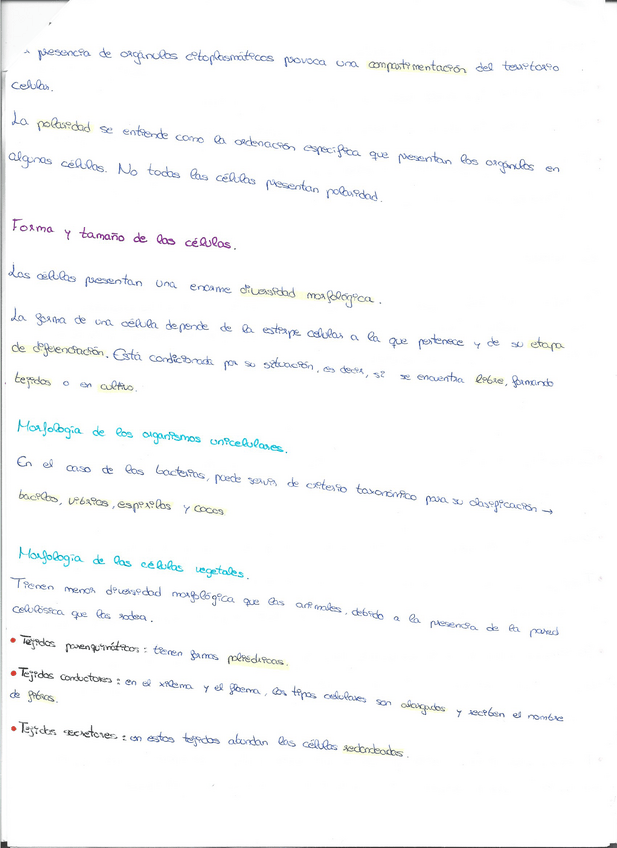 presencia de orgánulos citoplasmáticos provoca una compartimentación del territorio
celular.
La polaridad se entiende como la ordenación específica que presentan los orgánulos en
algunas células. No todas las células presentan polaridad.
Forma y tamaño de las células.
Las células presentan una enorme diversidad morfológica.
La forma de una célula depende de la estirpe celular a la que pertenece y de su etapa
de diferenciación. Está condicionada por su situación, es decir, si se encuentra libre, formando
tejidos o en cultivo.
Morfología de los organismos unicelulares.
En el caso de las bacterias, puede servir de criterio taxonómico para su clasificación →
bacilos, vibrios, espirilos y cocos
Morfología de las células vegetales.
Tienen menor diversidad morfológica que las animales, debido a la presencia de la pared
celulósica que las rodea.
• Tejidos parenquimáticos: tienen formas poliédricas.
• Tejidos conductores: en el xilema y el floema, los tipos celulares son alargados y reciben el nombre
de fibras.
• Tejidos secretores: en estos tejidos abundan las células redondeadas.